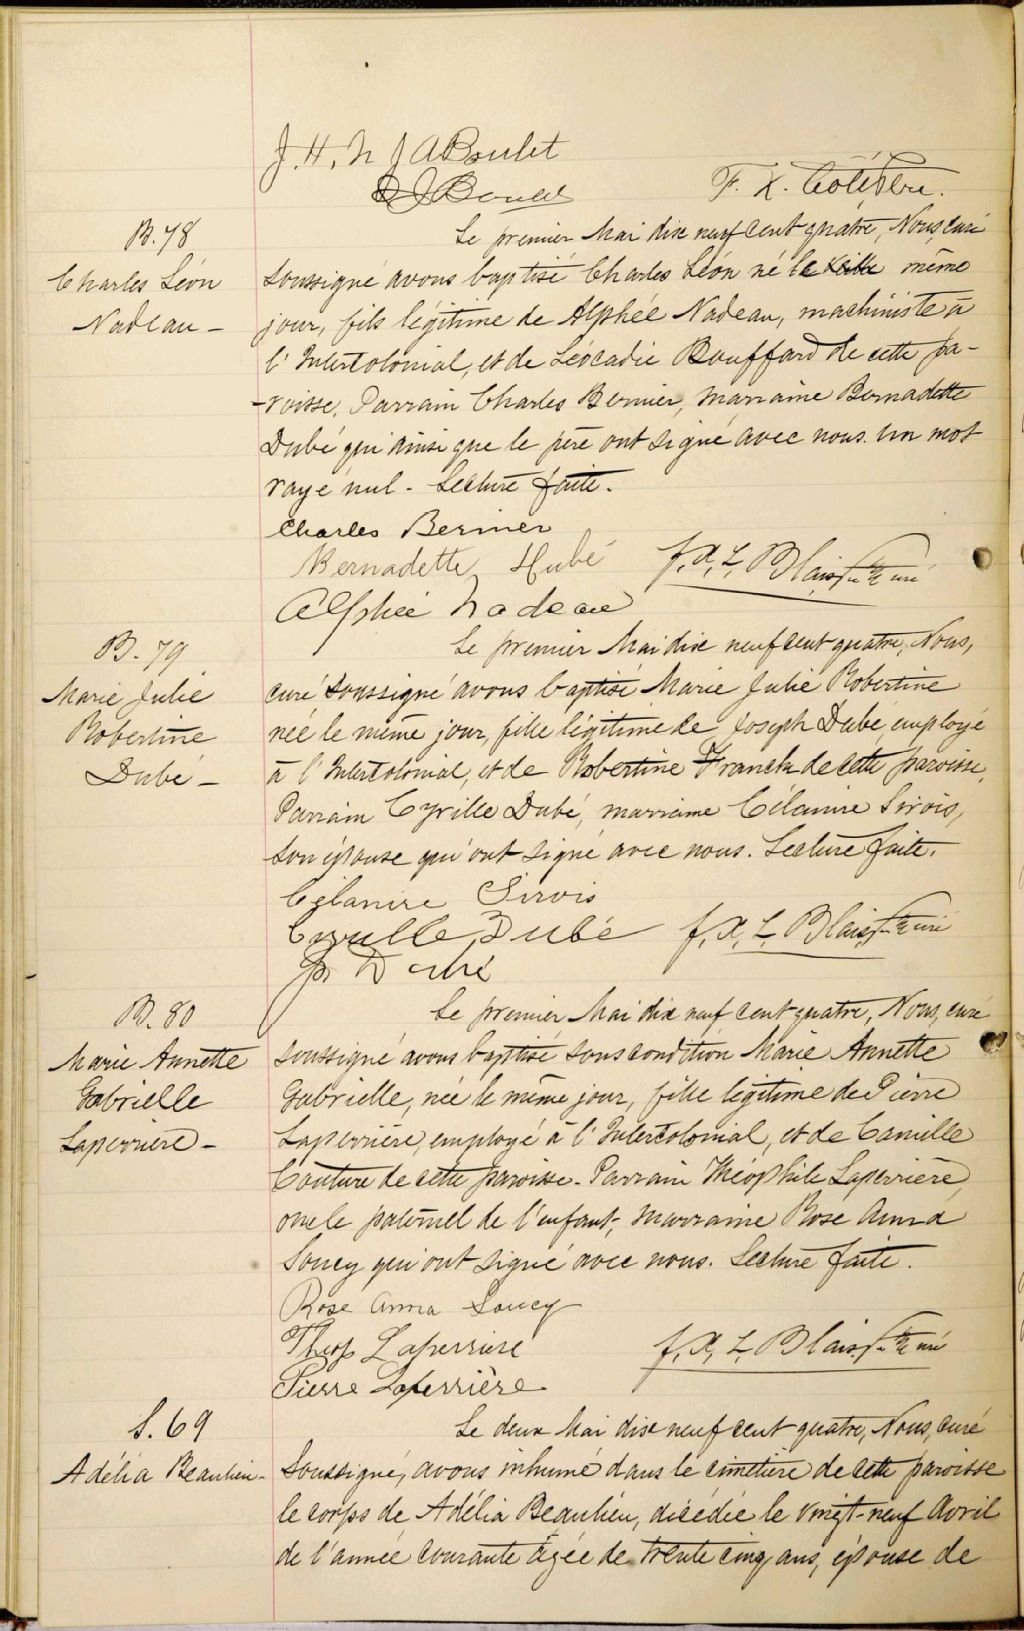 J. H. N J A Boulet
F. X. Côté ptre.
B. 78
Charles Léon
Nadeau —
Le premier Mai dix neuf cent quatre, Nous, curé
soussigné avons baptisé Charles Léon né le veille même
jour, fils légitime de Alphée Nadeau, machiniste à
l'Intercolonial, et de Léocadie Bouffard de cette pa-
-roisse. Parrain Charles Bernier, marraine Bernadette
Dubé qui ainsi que le père ont signé avec nous. Un mot
rayé nul. Lecture faite.
Charles Bernier
Bernadette Dubé
F. X. L. Blais, Ptre curé
Alphée Nadeau
B. 79
Marie Julie
Robertine
Dubé —
Le premier Mai dix neuf cent quatre, Nous,
curé soussigné avons baptisé Marie Julie Robertine
née le même jour, fille légitime de Joseph Dubé employé
à l'Intercolonial, et de Robertine Franck de cette paroisse.
Parrain Cyrille Dubé, marraine Célanire Sirois,
son épouse qui ont signé avec nous. Lecture faite.
Célanire Sirois
Cyrille Dubé
F. X. L. Blais, Ptre curé
Jos Dubé
B. 80
Marie Annette
Gabrielle
Laperrière —
Le premier Mai dix neuf cent quatre, Nous, curé
soussigné avons baptisé sous condition Marie Annette
Gabrielle, née le même jour, fille légitime de Pierre
Laperrière, employé à l'Intercolonial, et de Camille
Couture de cette paroisse. Parrain Théophile Laperrière,
oncle paternel de l'enfant, marraine Rose Anna
Soucy qui ont signé avec nous. Lecture faite.
Rose Anna Soucy
Theop Laperriere
F. X. L. Blais, Ptre curé
Pierre Laperrière
S. 69
Adélia Beaulieu —
Le deux Mai dix neuf cent quatre, Nous, curé
soussigné, avons inhumé dans le cimetière de cette paroisse
le corps de Adélia Beaulieu, décédée le vingt-neuf Avril
de l'année courante âgée de trente cinq ans, épouse de